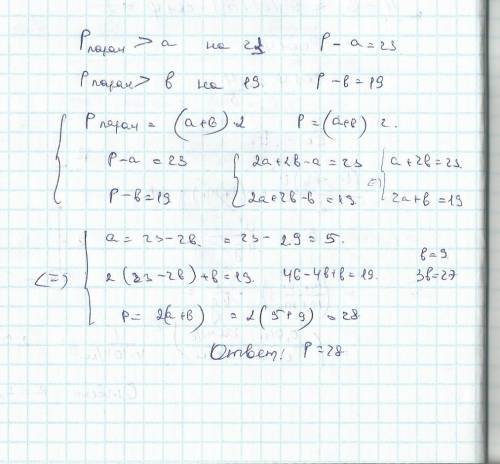 Pпарал > a на 23 P - a = 23
Pпарал > b на 19. P - b = 19
Pпарал = (a+b) 2 P = (a+b) 2.
P - a = 23 2a+2b-a = 23 a+2b = 23
P - b = 19 2a+2b-b = 19 (=) 2a+b = 19
a = 23-2b. = 23 - 2·9 = 5.
b = 9
(=) 2(23-2b)+b = 19. 46-4b+b = 19. 3b = 27
P = 2(a+b) = 2(5+9) = 28
Ответ: P = 28